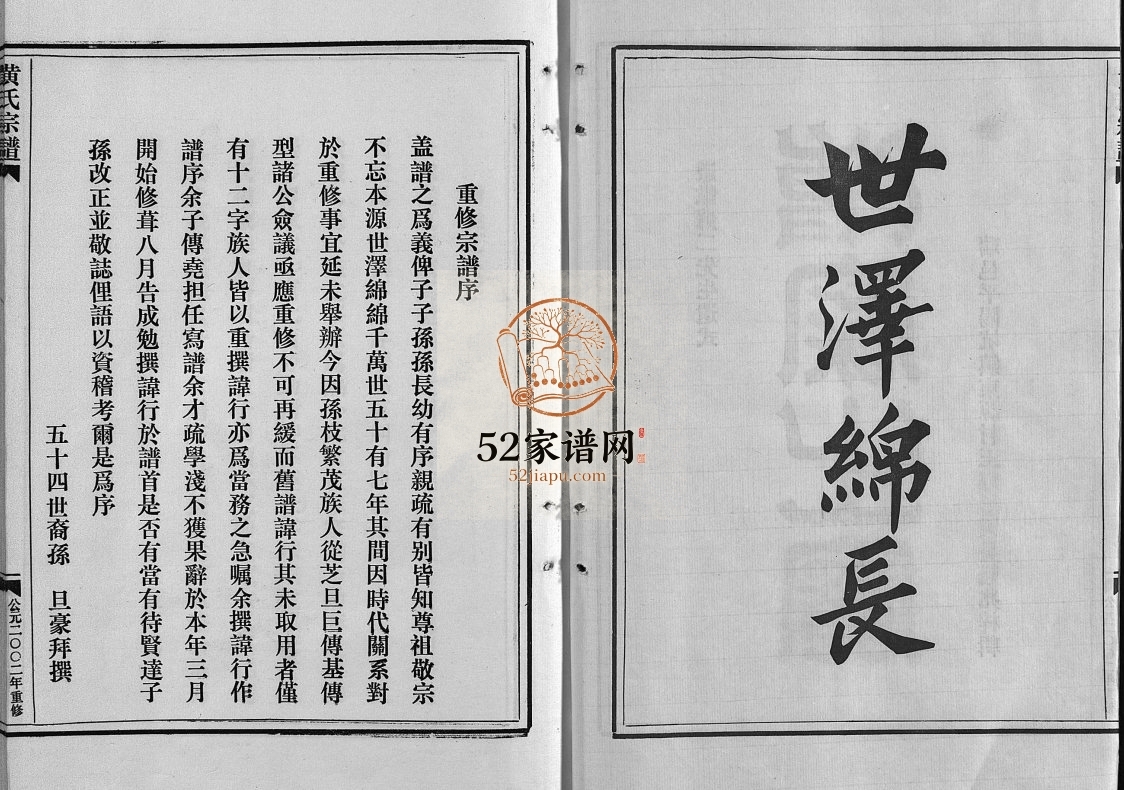 世澤綿長
重修宗譜序
盖譜之爲義俾子子孫孫長幼有序親疏有别皆知尊祖敬宗
不忘本源世澤綿綿千萬世五十有七年其間因時代關系對
於重修事宜延未舉辦今因孫枝繁茂族人從芝旦巨傳基傳
型諸公僉議亟應重修不可再緩而舊譜諱行其未取用者僅
有十二字族人皆以重撰諱行亦爲當務之急嘱余撰諱行作
譜序余子傳堯担任寫譜余才疏學淺不獲果辭於本年三月
開始修葺八月告成勉撰諱行於譜首是否有當有待賢達子
孫改正並敬誌俚語以資稽考爾是爲序
五十四世裔孫 旦豪拜撰
黄氏宗譜
公元二〇〇二年重修
52家谱网
52jiapu.com